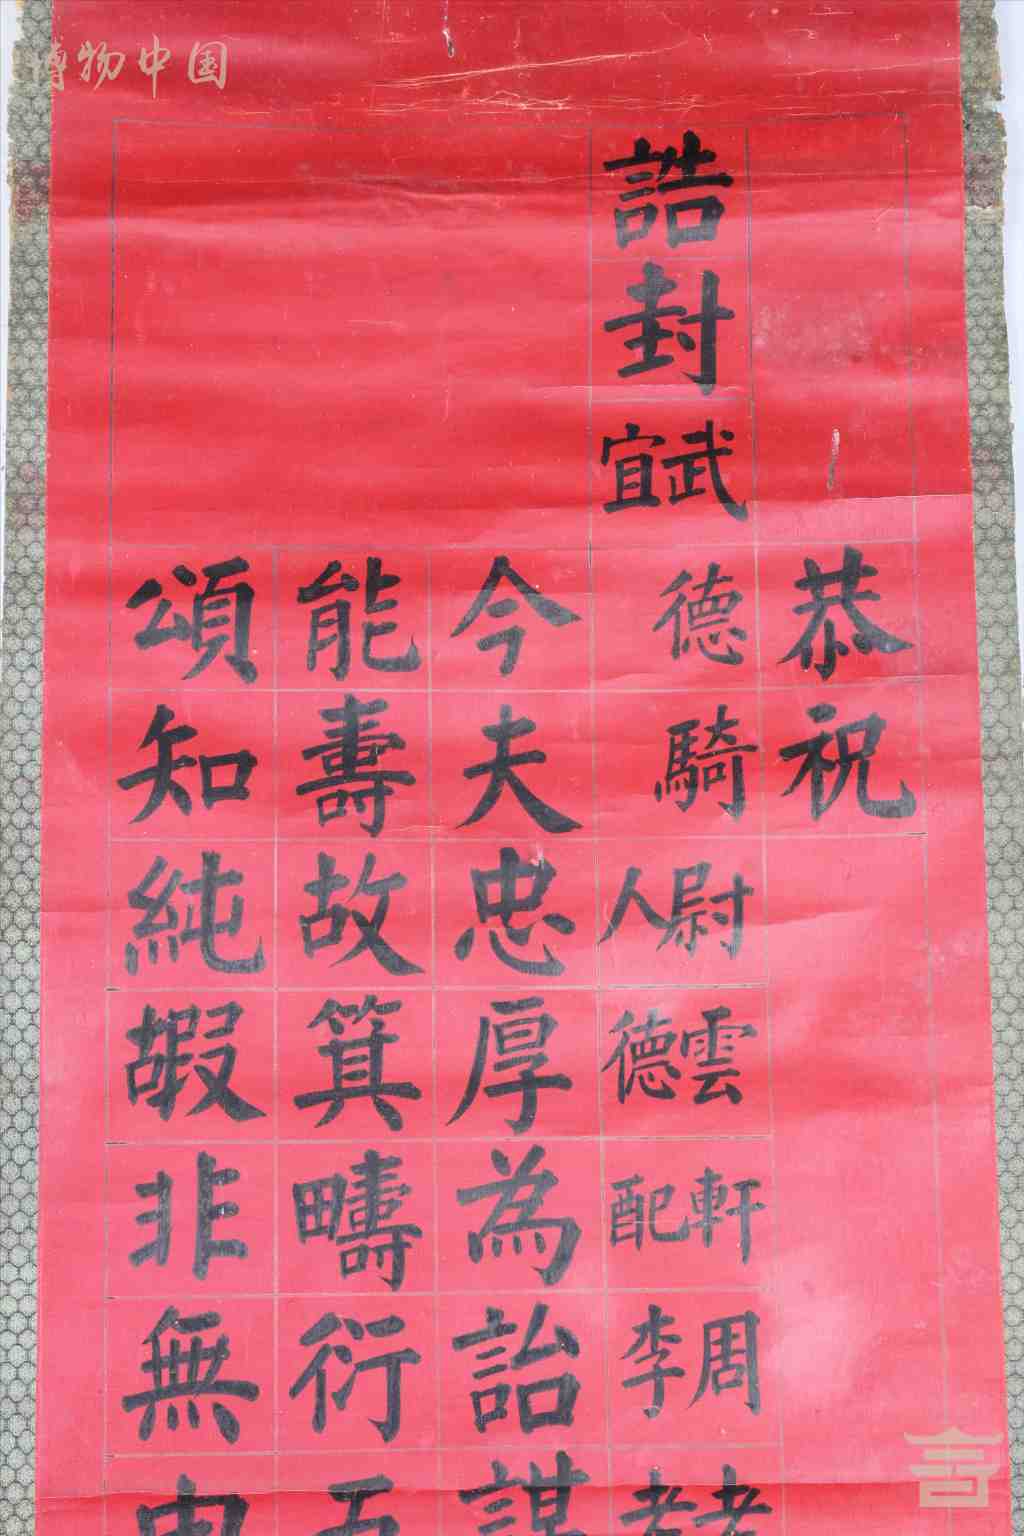 博物中国
恭祝
誥封
武德騎尉雲軒周老
宜人德配李老
今夫忠厚為詒謀
能壽故箕疇衍五
頌知純嘏非無